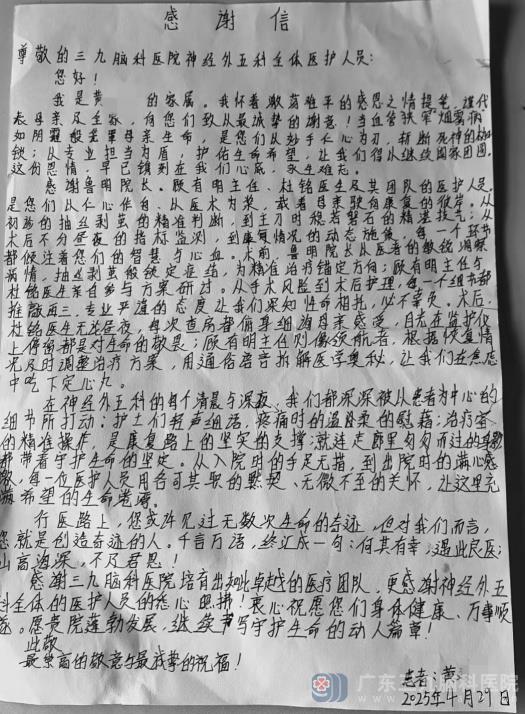 感谢信
尊敬的三九脑科医院神经外五科全体医护人员:
您好!
我是黄 的家属。我怀着激荡难平的感恩之情提笔,谨代
表母亲及全家,向您们致以最诚挚的谢意!当血管狭窄"烟雾病"
如阴霾般笼罩母亲生命,是您们以妙手仁心为刃,斩断死神的
锁;以专业担当为盾,护佑生命希望,让我们得以继续阖家团圆。
这份恩情,早已镌刻在我们心底,永生难忘。
感谢鲁明院长。顾有明主任、杜铭医生及其团队的医护人员,
是您们以仁心作舟、以医术为桨,载着母亲驶向康复的彼岸。从
初诊的抽丝剥茧的精准判断,到主刀时稳若磐石的精湛技艺;从
术后不分昼夜的指标监测,到康复情况的动态施策,每一个环节
都倾注着您们的智慧与心血。术前,鲁明院长以医者的敏锐洞察
病情,抽丝剥茧般锁定症结,为精准治疗锚定方向;顾有明主任与
杜铭医生亲自参与方案研讨。从手术风险到术后护理,每一个细节都
推敲再三,专业严谨的态度让我们深知性命相托,必不辜负。术后,
杜铭医生无论昼夜,每次查房都俯身细询母亲感受,目光在监护仪
上停留都是对生命的敬畏;顾有明主任则像领航者,根据恢复情
况及时调整治疗方案,用通俗语言拆解医学奥秘,让我们在焦虑
中吃下定心丸。
在神经外五科的每个清晨与深夜,我们都深深被以患者为中心的
细节所打动:护士们轻声细语,疼痛时的温柔的慰藉;治疗室
的精准操作,是康复路上的坚实的支撑;就连走廊里匆匆而过的身影
都带着守护生命的坚定。从入院时的手足无措,到出院时的满心感
激,每一位医护人员用各司其职的默契、无微不至的关怀,让这里充
满希望的生命港湾。
行医路上,您或许见过无数次生命的奇迹,但对我们而言,
您就是创造奇迹的人。千言万语,终汇成一句:何其有幸,遇此良医;
山高海深,不及君恩!
感谢三九脑科医院培育出如此卓越的医疗团队,更感谢神经外五
科全体的医护人员的悉心照拂!衷心祝愿您们身体健康、万事顺
遂。愿贵院蓬勃发展,继续书写守护生命的动人篇章!
此致
最崇高的敬意与最诚挚的祝福!
患者:黄
2025年4月29日
广东三九脑科医院